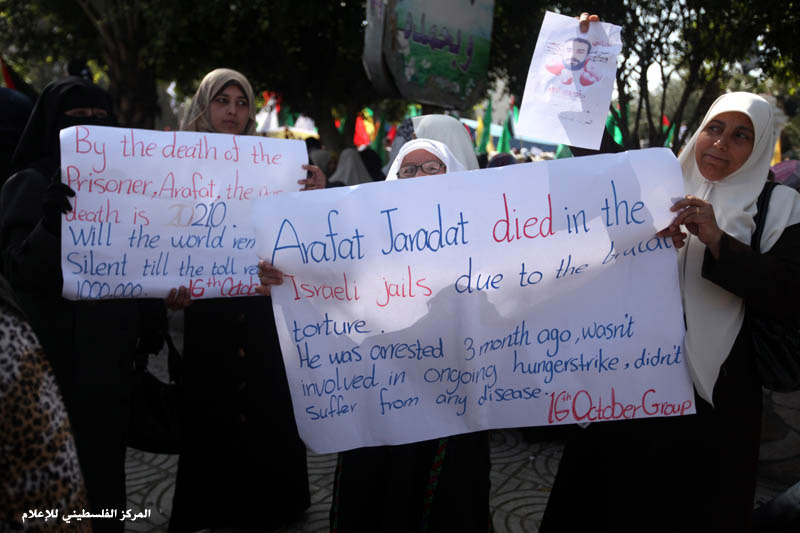 By the death of the
Prisoner, Arafat, the
death is 210.
Will the world
Silent till the toll
1000.000. 16th
Arafat Jaradat died in the
Israeli jails due to the brutal
torture.
He was arrested 3 month ago, wasn't
involved in ongoing hungerstrike, didn't
Suffer from any disease. 16th October Group
المركز الفلسطيني للإعلام